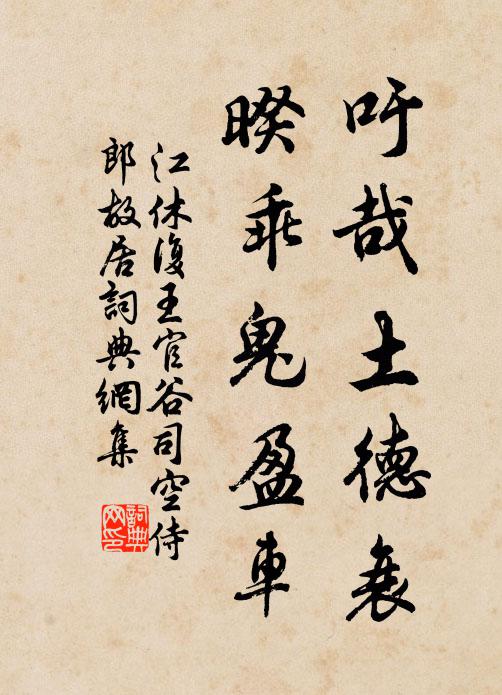 吁哉土德衰
暌乖鬼盈車
江休復王官谷司空侍
郎故居詞典網集
詞典网印